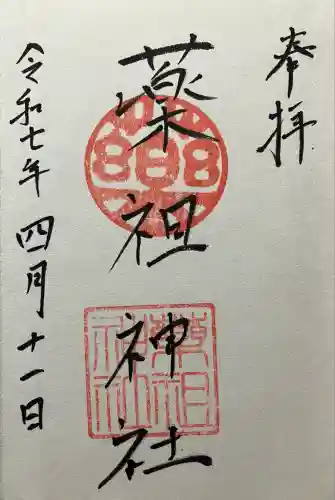 奉拝
薬祖神社
令和七年四月十一日
薬祖
神社